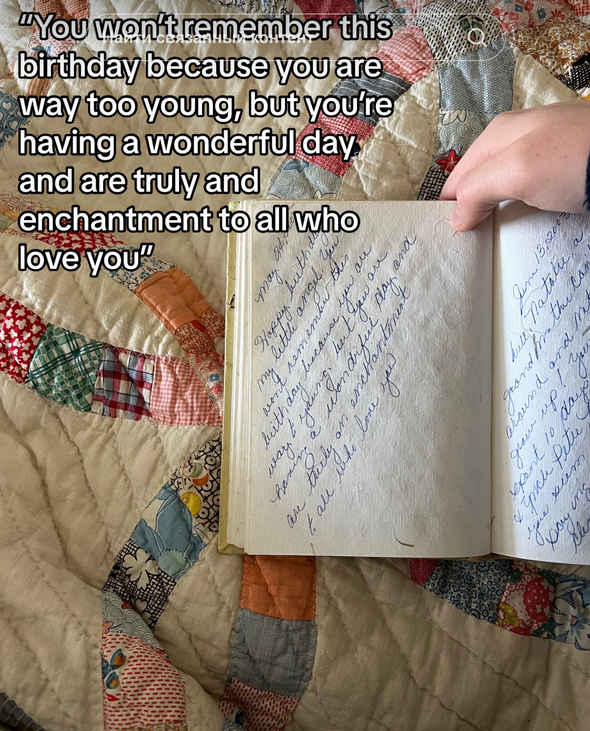 "You won't remember this
Найти связанный контент
birthday because you are
way too young, but you're
having a wonderful day
and are truly and
enchantment to all who
love you"
may
Happy birthday
my little angel you
wont remember this
birthday because you are
way to young but you are
having a wonderful day and
are truly an enchantment
t all who love yo
June 13, 2003
around and
grown up! you
spent 10 days
& Uncle Pete
you seem